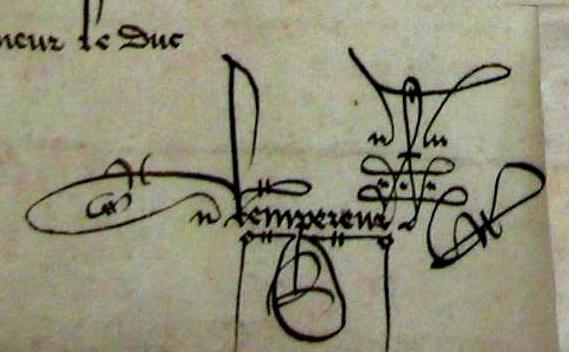 neur le Duc
N Lempereur